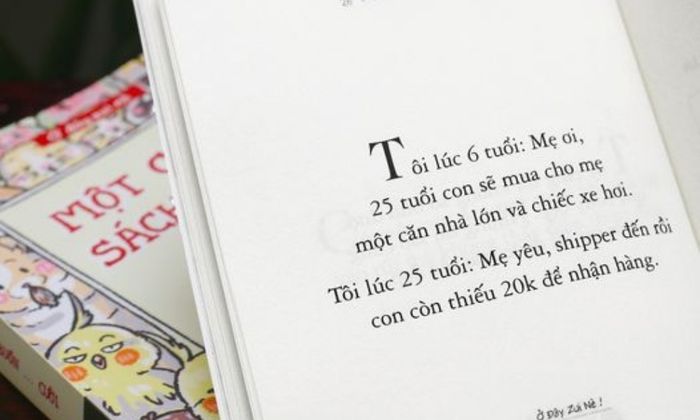 MỘT C
SÁCH
Tôi lúc 6 tuổi: Mẹ ơi,
25 tuổi con sẽ mua cho mẹ
một căn nhà lớn và chiếc xe hơi.
Tôi lúc 25 tuổi: Mẹ yêu, shipper đến rồi
con còn thiếu 20k để nhận hàng.
Ở Đây Zui Nè!